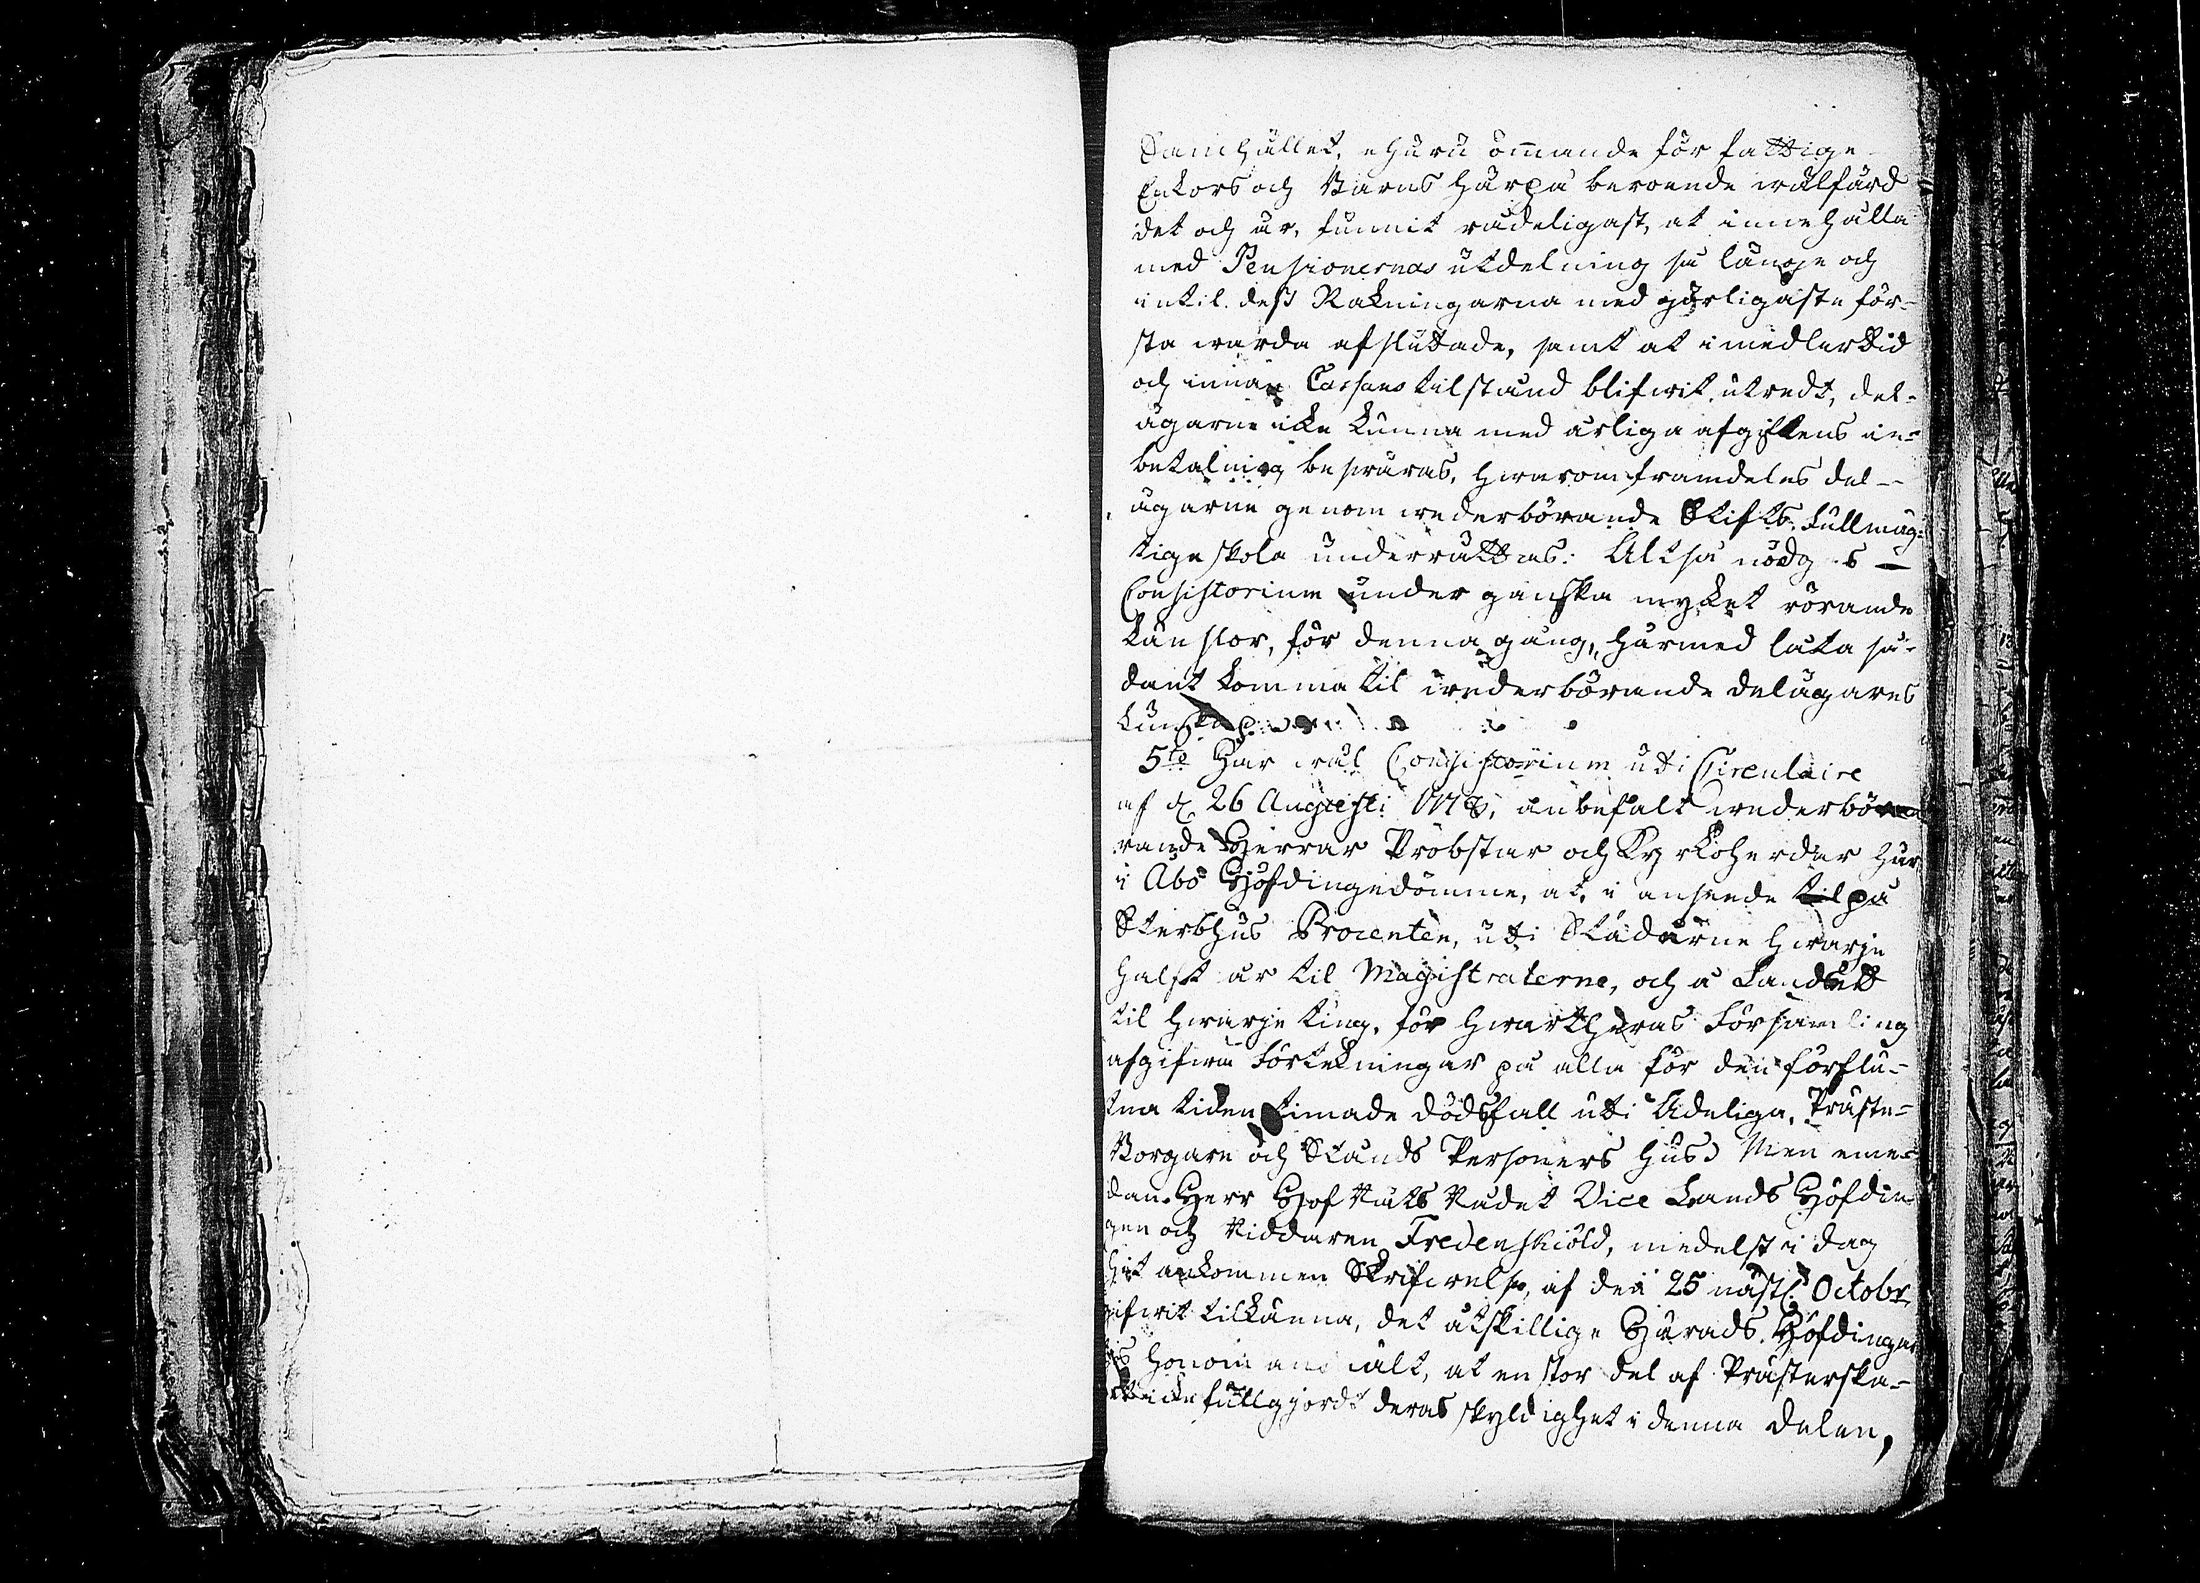 Samhället, ehuru ömmande för fattige
Enkors och Barns härpå beroende wälfärd
det och är, funnit rådeligast, at innehålla
med Pensionernas utdelning så länge och
intil dess Räkningarna med görligaste för-
sta warda afslutade, samt at imedlertid
och innan Cassans tilstånd blifwit utredt, del-
ägarne icke kunna med årliga afgiftens in-
betalning beswäras, hwarom framdeles del-
ägarne genom wederbörande Stifts Fullmäg-
tige skola underrättas: Altså nödgas
Consistorium under ganska mycket rörande
känslor, för denna gång, härmed låta så-
dant komma til wederbörande delägares
kunskap
5to Har wäl Consistorium uti Circulaire
af d. 26 Augusti anbefalt wederbö
rande Herrar Probstar och Kyrkoherdar här
i Åbo Höfdingedömme, at, i anseende til på
Sterbhus Procenten, uti Städerne hwarje
halft år til Magistraterne, och å Landet
til hwarje ting, för hwarthera s Församling
afgifwa Förtekningar på alla för den förflu-
tna tiden timade dödsfall uti Adeliga, Präste-
Borgare och Stånds Personers hus; Men eme-
dan Herr Hof Rätts Rådet Vice Lands Höfdin-
gen och Riddaren Fredenskiöld, medelst i dag
hit ankommen Skrifwelse, af den 25 nästl. Octobr,
gifwit tilkänna, det åtskillige Härads Höfdingar
hos honom anmält, at en stor del af Prästerska-
pet icke fullgjordt deras skyldighet i denna delen,